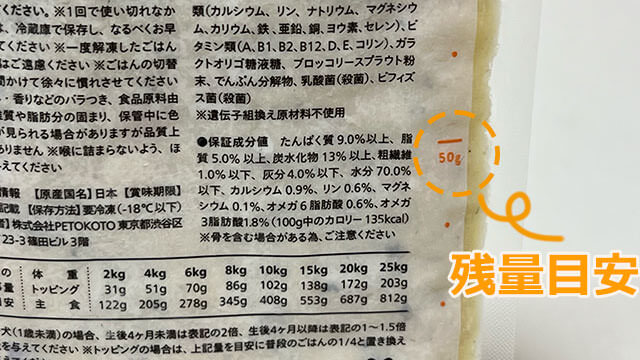 ください。※1回で使い切れなか
は、冷蔵庫で保存し、なるべくお早
てください ※一度解凍したごはん
はご遠慮ください ※ごはんの切替
間かけて徐々に慣れさせてください
・香りなどのバラつき、食品原料由
維質や脂肪分の固まり、保管中に色
が見られる場合がありますが品質上
ありません ※喉に詰まらないよう、ほ
与えてください
情報 【原産国名】日本 【賞味期限】
記載 【保存方法】要冷凍(-18℃以下)
者】株式会社PETOKOTO 東京都渋谷区
23-3 篠田ビル3階
類(カルシウム、リン、ナトリウム、マグネシウ
ム、カリウム、鉄、亜鉛、銅、ヨウ素、セレン)、ビ
タミン類(A、B1、B2、B12、D、E、コリン)、ガラ
クトオリゴ糖液糖、ブロッコリースプラウト粉
末、でんぷん分解物、乳酸菌(殺菌)、ビフィズ
ス菌(殺菌)
※遺伝子組換え原材料不使用
●保証成分値 たんぱく質 9.0%以上、脂
質 5.0%以上、炭水化物 13%以上、粗繊維
1.0%以下、灰分 4.0%以下、水分 70.0%
以下、カルシウム 0.9%、リン 0.6%、マグネ
シウム 0.1%、オメガ 6 脂肪酸 0.6%、オメガ
3 脂肪酸1.8% (100g中のカロリー 135kcal)
※骨を含む場合がある為、ご注意ください
50g
残量目安
の 体重 2kg 4kg 6kg 8kg 10kg 15kg 20kg 25kg
量 トッピング 31g 51g 70g 86g 102g 138g 172g 203g
安 主食 122g 205g 278g 345g 408g 553g 687g 812g
犬(1歳未満)の場合、生後4ヶ月未満は表記の2倍、生後4ヶ月以降は表記の1〜1.5倍
を与えてください ※トッピングの場合は、上記量を目安に普段のごはんの1/4と置き換え